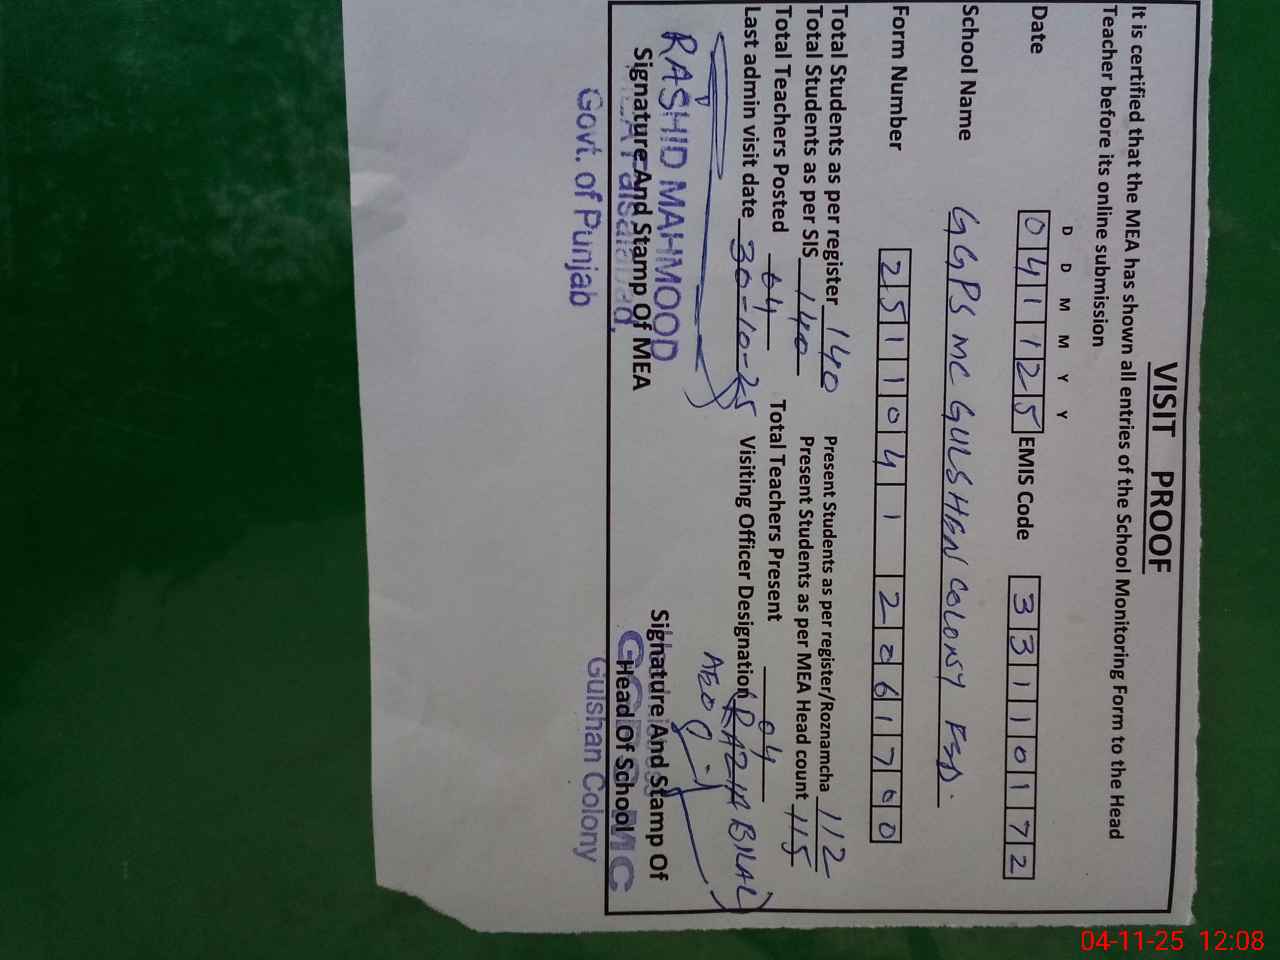 VISIT PROOF
It is certified that the MEA has shown all entries of the School Monitoring Form to the Head
Teacher before its online submission
D D M M Y Y
Date 041125 EMIS Code 33110172
School Name GGPS MC GULSHAN COLONY FSD.
Form Number 2511041 2061700
Total Students as per register 140 Present Students as per register/Roznamcha 112
Total Students as per SIS 140 Present Students as per MEA Head count 115
Total Teachers Posted 04 Total Teachers Present 04
Last admin visit date 30-10-25 Visiting Officer Designation (RAZIA BILAL)
AEO
RASHID MAHMOOD
Signature And Stamp Of MEA Signature And Stamp Of
MEA Faisalabad, Head Of School
GGPS MC
Govt. of Punjab Gulshan Colony
04-11-25 12:08